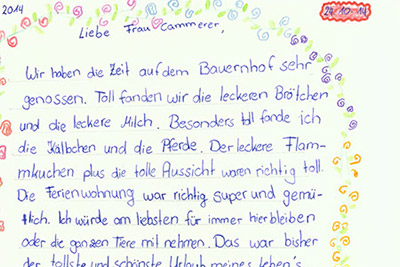 2014
24.10.14
Liebe Frau Cammerer,
Wir haben die Zeit auf dem Bauernhof sehr
genossen. Toll fanden wir die leckeren Brötchen
und die leckere Milch. Besonders toll fande ich
die Kälbchen und die Pferde. Der leckere Flam-
mkuchen plus die tolle Aussicht waren richtig toll.
Die Ferienwohnung war richtig super und gemü-
tlich. Ich würde am liebsten für immer hierbleiben
oder die ganzen Tiere mit nehmen. Das war bisher
der tollste und schönste Urlaub meines Leben's